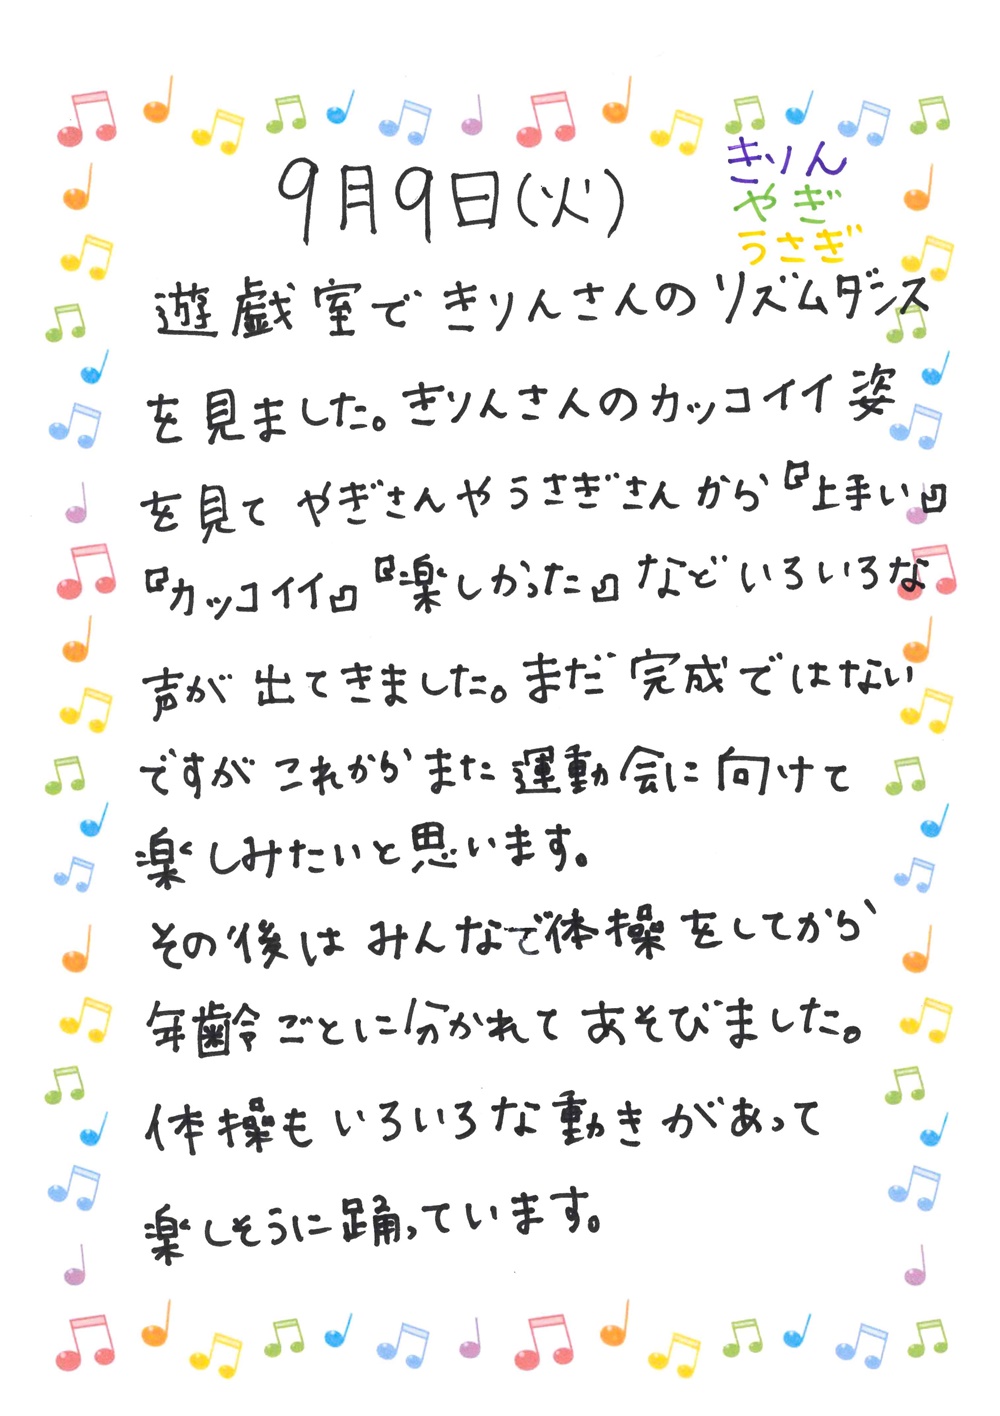 9月9日(火)
きりん
やぎ
うさぎ
遊戯室できりんさんのリズムダンス
を見ました。きりんさんのカッコイイ姿
を見てやぎさんやうさぎさんから『上手い』
『カッコイイ』『楽しかった』などいろいろな
声が出てきました。まだ完成ではない
ですがこれからまた運動会に向けて
楽しみたいと思います。
その後はみんなで体操をしてから
年齢ごとに分かれてあそびました。
体操もいろいろな動きがあって
楽しそうに踊っています。